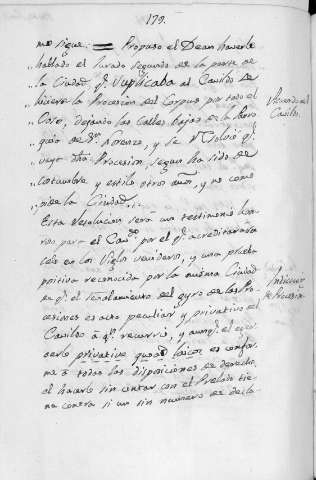 179.
me sigue. = Propuso el Dean haverle
hablado el Jurado segundo de la parte de
la Ciudad, q.e suplicaba al Cavildo se
,, hiciera la Procesion del Corpus por todo el
,, Coso, dejando las Calles bajas de la Parro
,, quia de S.n Lorenzo, y se resolvió q.e
,, vaya dha Procesion, segun ha sido de
,, costumbre y estilo otros años, y no como
,, pide la Ciudad.
Acuerdo del
Cavildo.
Esta resolucion será un testimonio hon
roso para el Cav.do por el q.e acreditará
en los Siglos venideros, y una prueba
positiva reconocida por la misma Ciudad
en q.e el señalamiento del gyro de las Pro
cesiones es acto peculiar y privativo del
Cavildo á q.n recurrió, y aunq.e el
serlo privative quoad laicos es confor
me á todas las disposiciones de derecho,
el hacerlo sin contar con el Prelado tie
ne contra si un sin numero de decla